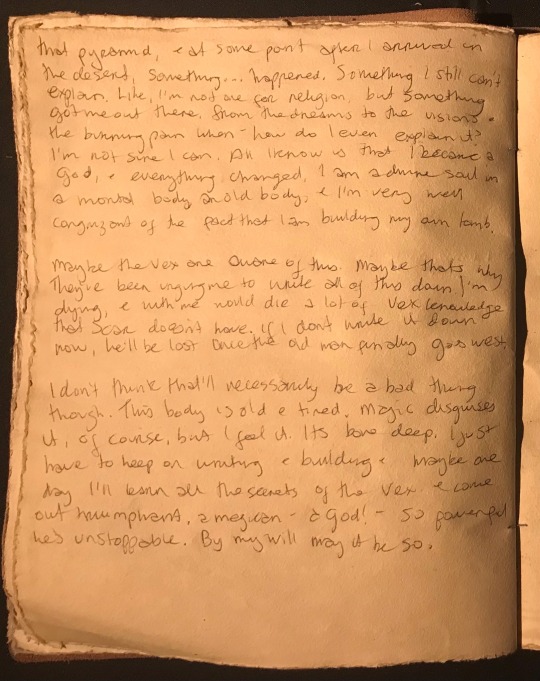 that pyramid, & at some point after I arrived in
the desert, something... happened. Something I still can't
explain. Like, I'm not one for religion, but something
got me out there. From the dreams to the visions &
the burning pain when - how do I even explain it?
I'm not sure I can. All I know is that I became a
god, & everything changed. I am a divine soul in
a mortal body, an old body, & I'm very well
congnizant of the fact that I am building my own tomb.
Maybe the Vex are aware of this. Maybe that's why
they've been urging me to write all of this down. I'm
dying, & with me would die a lot of Vex knowledge
that Scar doesn't have. If I don't write it down
now, he'll be lost once the old man finally goes west.
I don't think that'll necessarily be a bad thing
though. This body is old & tired. Magic disguises
it, of course, but I feel it. Its bone deep. I just
have to keep on writing & building & maybe one
day I'll learn all the secrets of the Vex & come
out triumphant, a magican - a God! - so powerful
he's unstoppable. By my will may it be so.